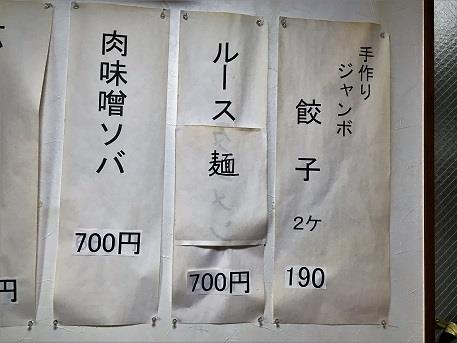 手作り
ジャンボ
餃子
2ケ
190
ルース
麺
700円
肉味噌ソバ
700円
円